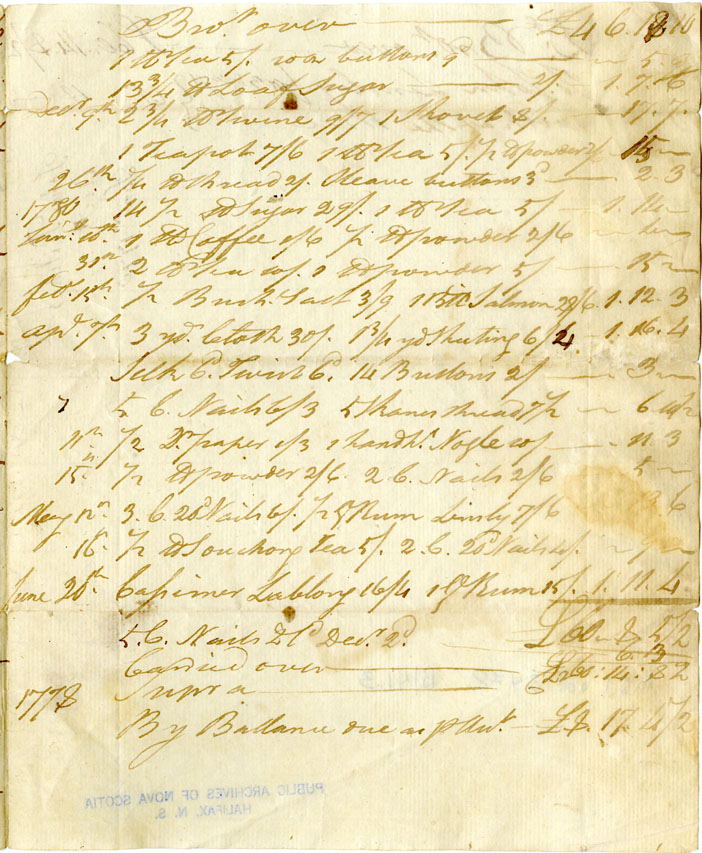 Bro.t over £46.18.10
1 lb Tea 5/. 10 buttons 9
13 3/4 lb Loaf Sugar 2/. 1.7.6
Decr. 9th 2 3/4 lb twine 9/7 1 Shovel 8/. 17.7.
1 Teapot 7/6 1 lb Tea 5/. 1/2 lb powder 2/ 15
26th 1/4 lb thread 2/. Sleave buttons 3d 2.3
1780 14 1/2 lb Sugar 29/. 1 lb Tea 5/ 1.14
Jany. 10th 1 lb Coffee 1/6 1/2 lb powder 2/6
31st 2 lb Tea 10/. 1 lb powder 5/ 15
feby. 15th 1/2 Bush. Salt 3/9 1 Salmon 28/6. 1.12.3
apl. 7th 3 yd. Cloth 30/. 1 3/4 yd Sheeting 6/4 1.16.4
Silk 6d. Twist 6d. 14 Buttons 2/ 3
7 5 C. Nails 6/3 5 Skanes thread 7 1/2 6.10 1/2
11th 1/2 Dr. paper 1/3 1 handk. 10/ 11.3
15. 1/2 lb powder 2/6. 2 C. Nails 2/6 5
May 12th 3. C. 20d Nails 6/. 1/2 g Rum 7/6 6
16. 1/2 lb Souchong Tea 5/. 2. C. 20d Nails 4/. 9
June 20th Cassimer 16/4 1 Gl Rum 15/. 1.11.4
5. C. Nails Decr. 2d.
Carried over
1778 Supra
By Ballance due as p Acct. 17.4 1/2
PUBLIC ARCHIVES OF NOVA SCOTIA
HALIFAX, N. S.